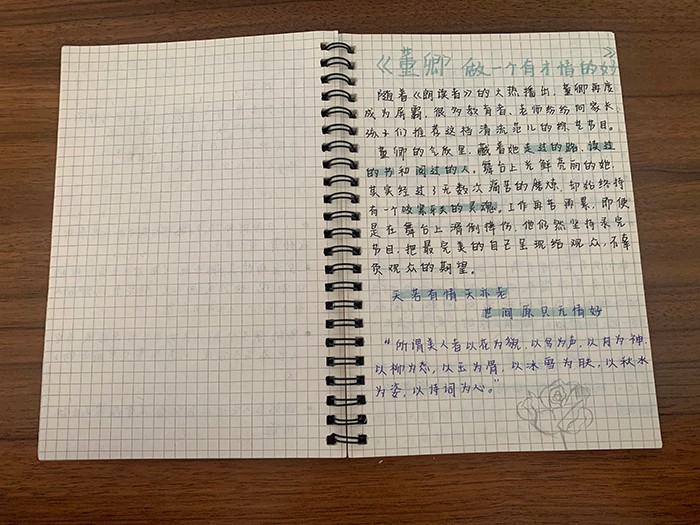 《董卿 做一个有才情的女子》
随着《朗读者》的火热播出，董卿再度
成为屏霸，很多教育者、老师纷纷向家长
孩子们推荐这档清流范儿的综艺节目。
董卿的气质里，藏着她走过的路，读过
的书和阅过的人。舞台上光鲜亮丽的她，
其实经过了无数次痛苦的磨炼，却始终持
有一个咬紧乐天的灵魂。工作再苦再累，即使
是在舞台上滑倒摔伤，她仍然坚持录完
节目，把最完美的自己呈现给观众，不辜
负观众的期望。
天若有情天亦老
世间原只无情好
“所谓美人者以花为貌，以鸟为声，以月为神，
以柳为态，以玉为骨，以冰雪为肤，以秋水
为姿，以诗词为心。”